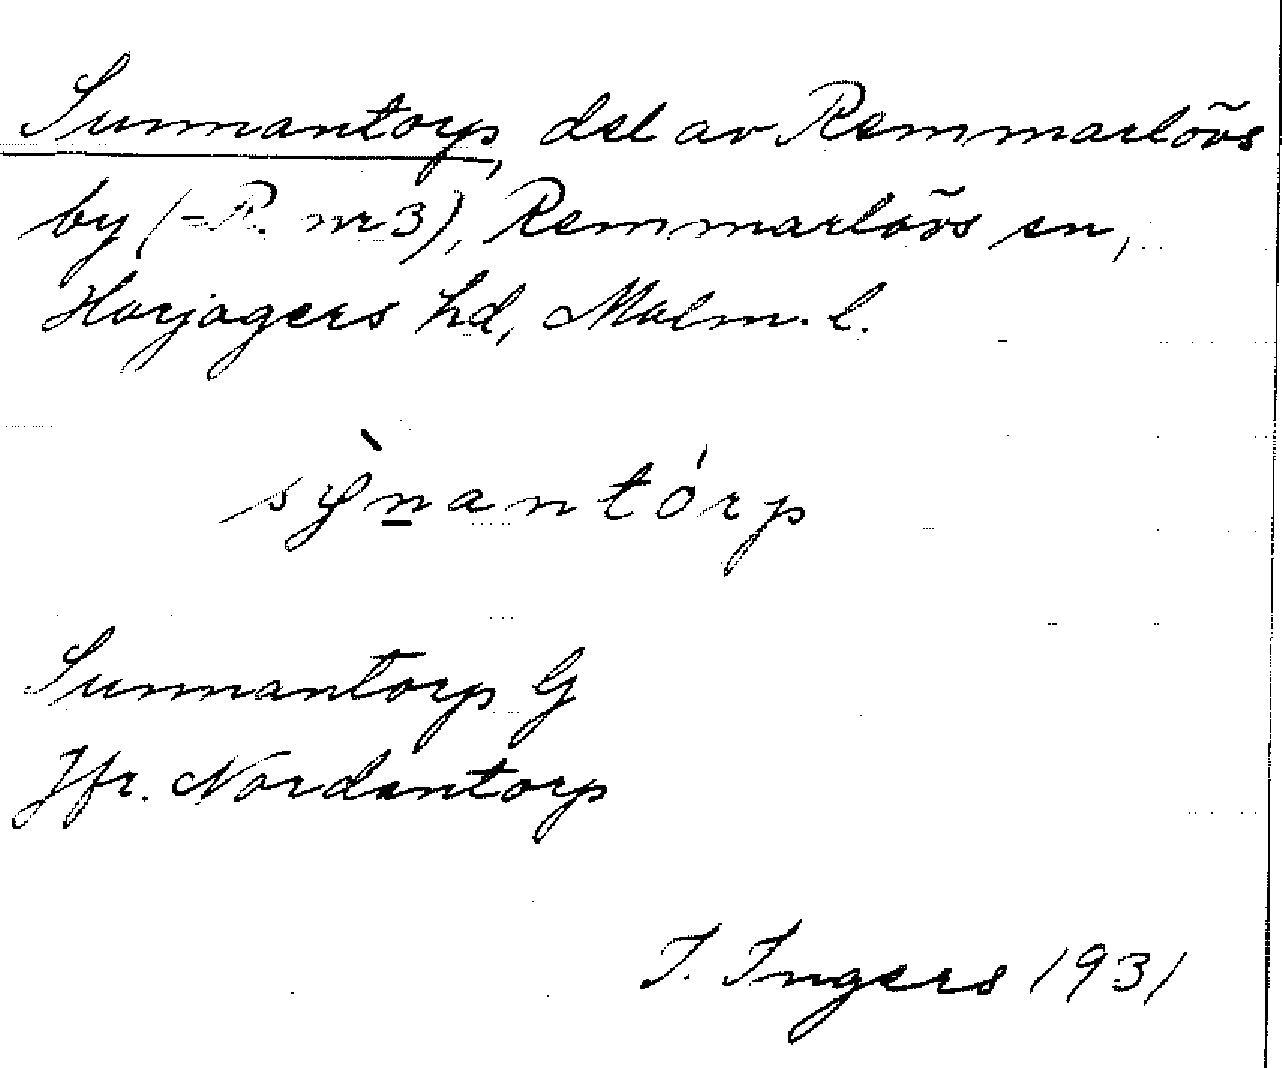 Sunnantorp, del av Remmarlövs
by (=R. nr 3), Remmarlövs sn,
Harjagers hd, Malm. l.
sỳnantórp
Sunnantorp G
Jfr. Nordantorp
I. Ingers 1931